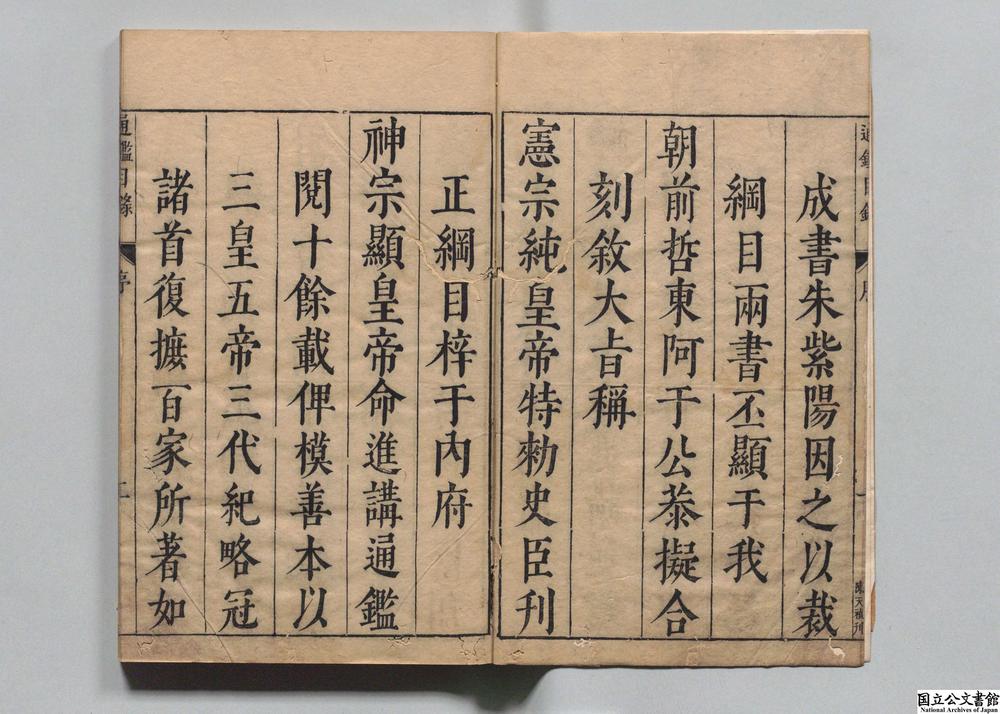 成書朱紫陽因之以裁
綱目兩書丕顯于我
朝前哲東阿于公恭擬合
刻敘大旨稱
憲宗純皇帝特勑史臣刊
正綱目梓于內府
神宗顯皇帝命進講通鑑
閱十餘載俾模善本以
三皇五帝三代紀略冠
諸首復摭百家所著如
通鑑目錄
序
通鑑目錄
序
国立公文書館
National Archives of Japan